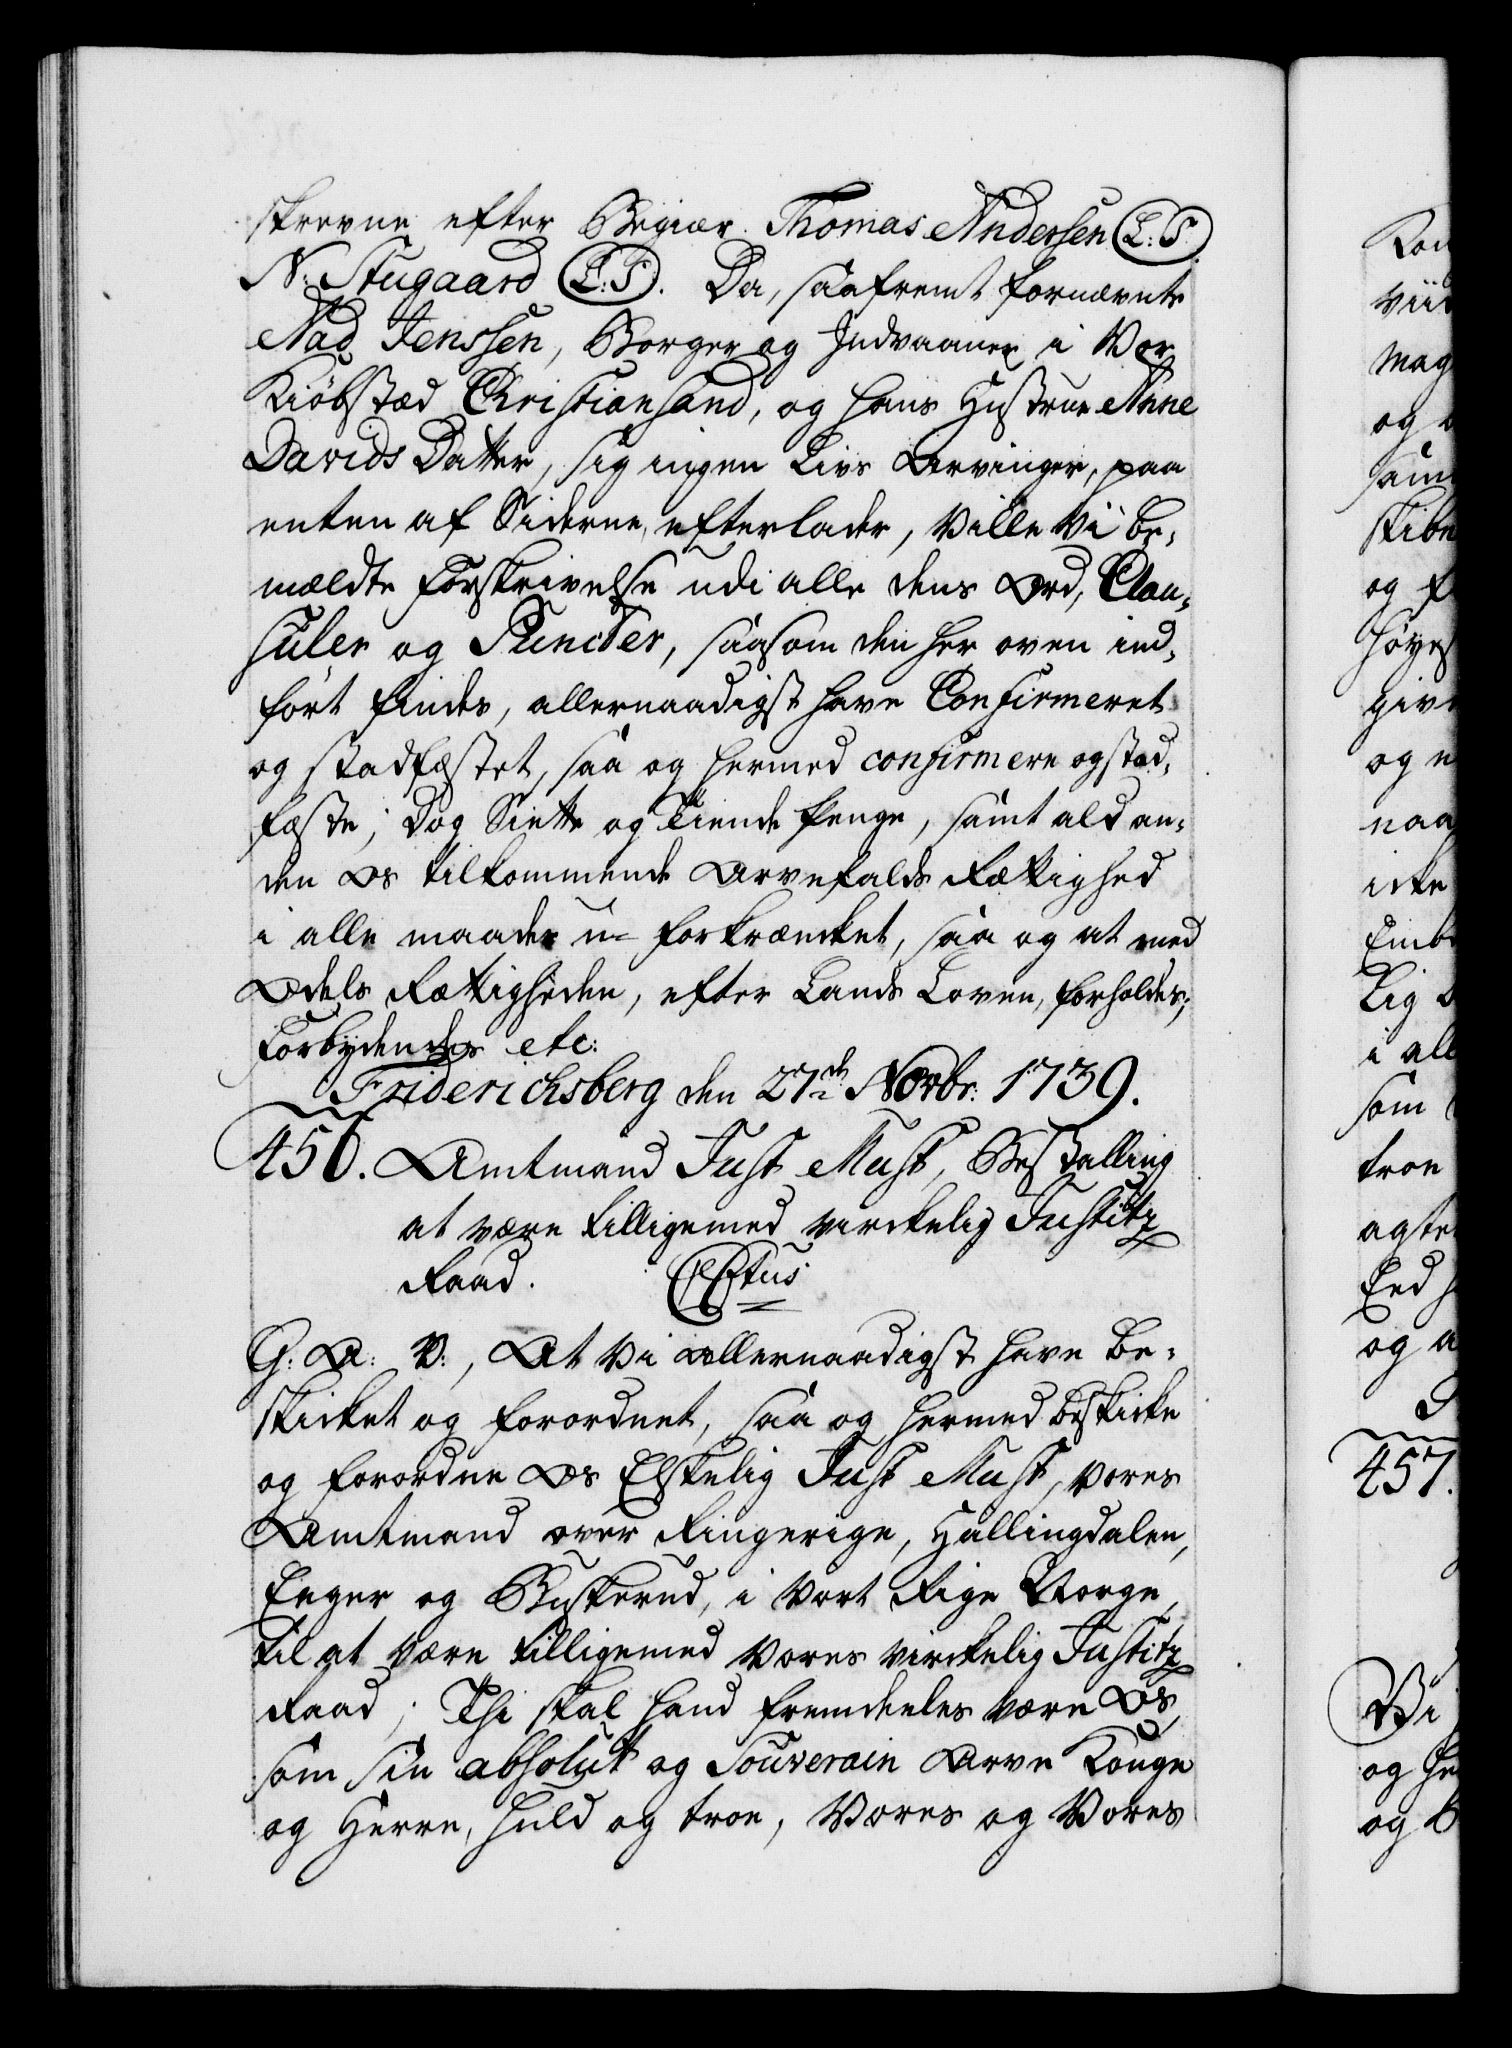 skrevne efter Begiær. Thomas Andersen (L:S.)
N: Stugaard (L:S:). Da, saafremt fornævnte
Aad Jenssen, Borger og Indvaaner i Vor
Kiøbstæd Christiansand, og hans Hustrue Anne
Davids Datter, sig ingen Livs Arvinger, paa
enten af Siderne, efterlader, Ville Vi be-
mældte Forskrivelse udi alle dens Ord, Clau-
suler og Puncter, saasom den her oven ind-
ført findes, allernaadigst have Confirmeret
og stadfæstet, saa og hermed confirmere og stad-
fæste; Dog Siette og Tiende Penge, samt ald an-
den Os tilkommende Arvefalds Rættighed
i alle maader u-forkræncket, saa og at med
Odels Rættigheden, efter Lands Loven, forholdes;
Forbydendes etc:
Friderichsberg den 27de Novbr: 1739.
456. Amtmand Just Must, Bestalling
at være tilligemed virckelig Justitz
Raad. CVtus
G: A: V:, At Vi allernaadigst have be-
skicket og forordnet, saa og hermed beskicke
og forordne Os Elskelig Just Must, Vores
Amtmand over Ringerige, Hallingdalen,
Eeger og Buskerud, i Vort Rige Norge,
til at være tilligemed Vores virckelig Justitz
Raad; Thi skal hand fremdeeles være Os,
som sin absolut og Souverain Arve Konge
og Herre, huld og troe, Vores og Vores
Kon
viid
mag
og
sam
skibe
og f
høyes
give
og
naa
icke
Emb
Lig
i all
som
troe
agte
Eed
og
457.
Vi
og he
og B